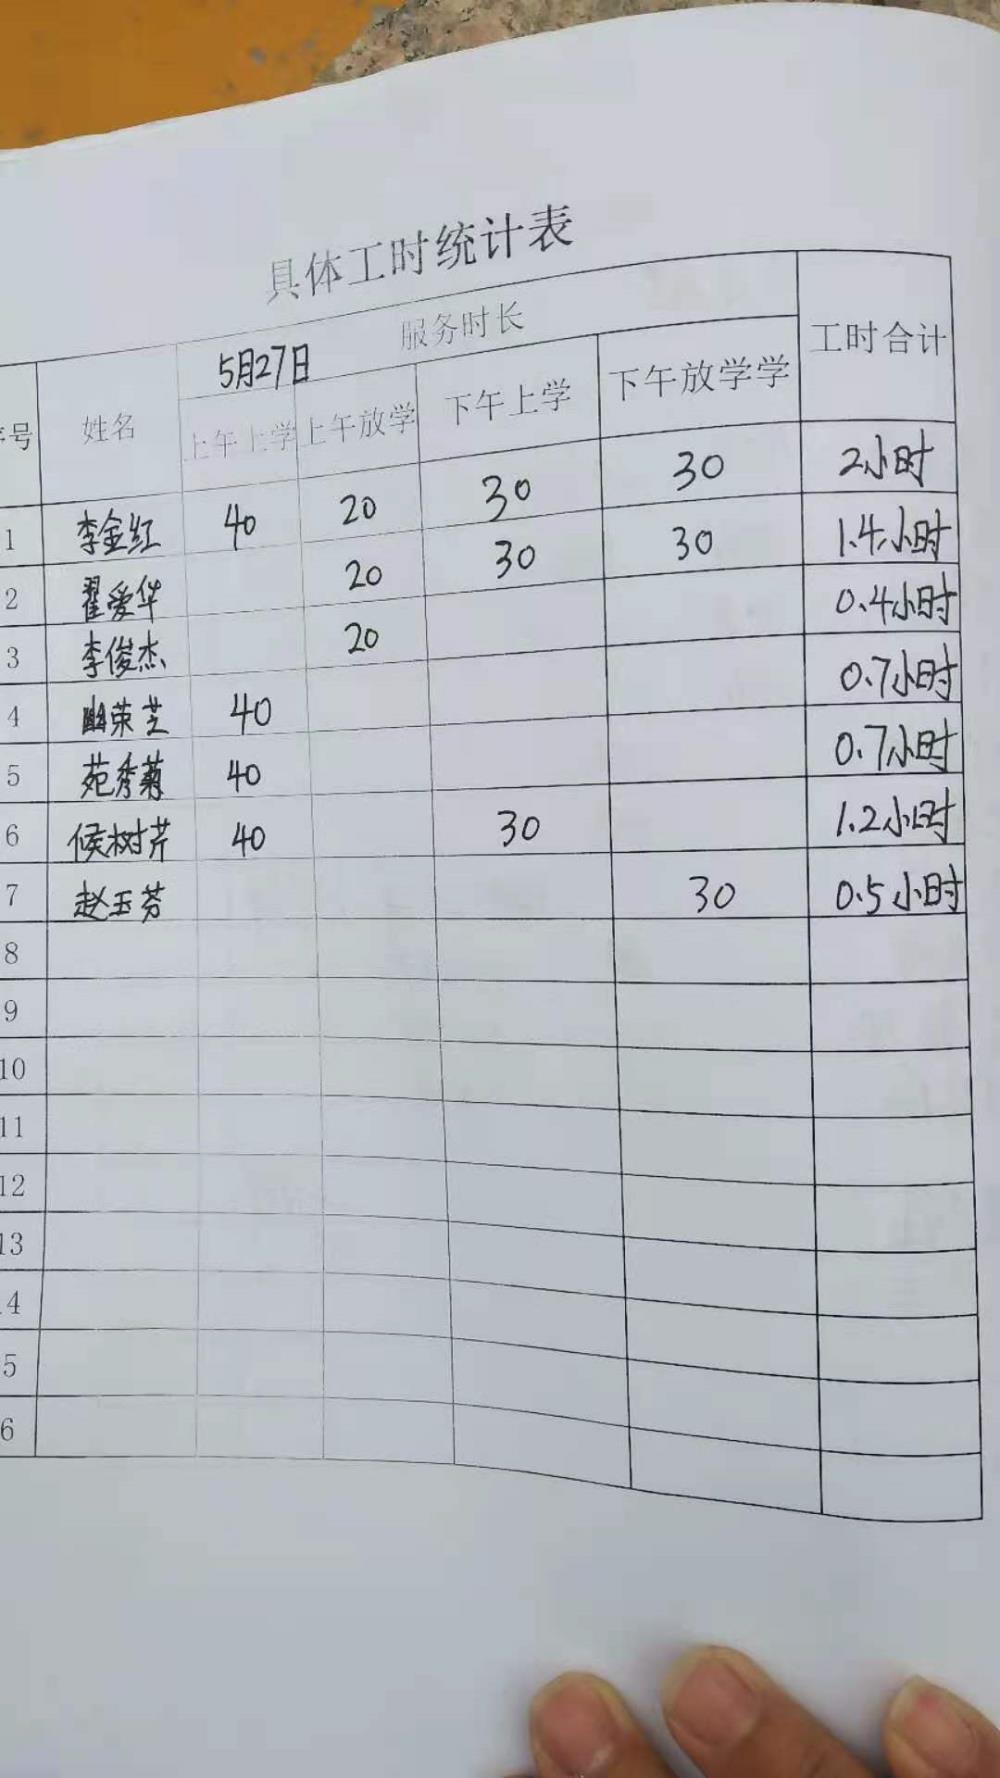 具体工时统计表
序号 姓名 5月27日 服务时长 工时合计
上午上学 上午放学 下午上学 下午放学学
1 李金红 40 20 30 30 2小时
2 翟爱华 20 30 30 1.4小时
3 李俊杰 20 0.4小时
4 荣芝 40 0.7小时
5 苑秀菊 40 0.7小时
6 候树芹 40 30 1.2小时
7 赵玉芬 30 0.5小时
8
9
10
11
12
13
4
5
6